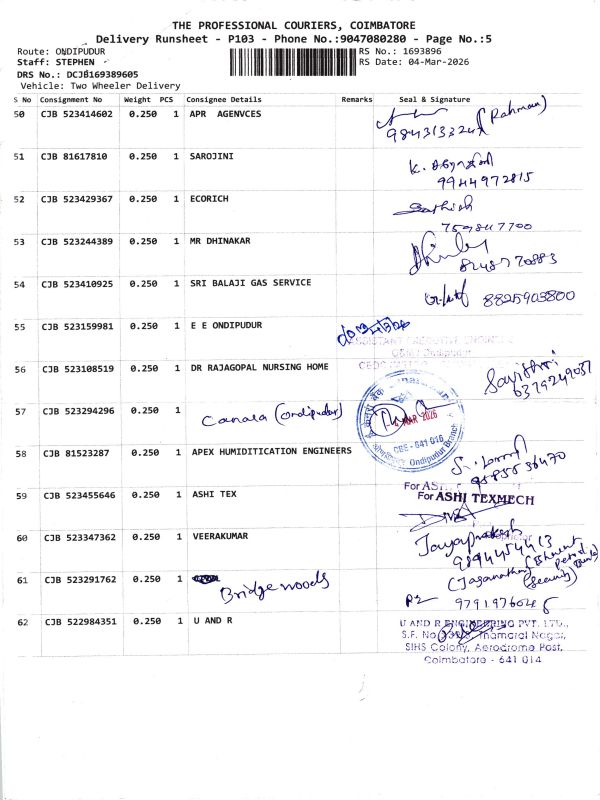 THE PROFESSIONAL COURIERS, COIMBATORE
Delivery Runsheet - P103 - Phone No.:9047080280 - Page No.:5
Route: ONDIPUDUR
RS No.: 1693896
Staff: STEPHEN
RS Date: 04-Mar-2026
DRS No.: DCJB169389605
Vehicle: Two Wheeler Delivery
S No Consignment No Weight PCS Consignee Details Remarks Seal & Signature
50 CJB 523414602 0.250 1 APR AGENVCES
(Rahman)
51 CJB 81617810 0.250 1 SAROJINI
9944972815
52 CJB 523429367 0.250 1 ECORICH
Sathish
53 CJB 523244389 0.250 1 MR DHINAKAR
54 CJB 523410925 0.250 1 SRI BALAJI GAS SERVICE
8825903800
55 CJB 523159981 0.250 1 E E ONDIPUDUR
56 CJB 523108519 0.250 1 DR RAJAGOPAL NURSING HOME
Savithri
6379249037
57 CJB 523294296 0.250 1 Canara (Ondipudur)
MAR 2026
CBE - 641 016
Ondipudur Branch
58 CJB 81523287 0.250 1 APEX HUMIDITICATION ENGINEERS
59 CJB 523455646 0.250 1 ASHI TEX
For ASHI TEXMECH
60 CJB 523347362 0.250 1 VEERAKUMAR
Jayaprakash
9894454413
61 CJB 523291762 0.250 1 Bridge woods
(Jaganathan) (Security)
62 CJB 522984351 0.250 1 U AND R
U AND R ENGINEERING PVT. LTD.,
S.F. No Thamarai Nagar,
SIHS Colony, Aerodrome Post,
Coimbatore - 641 014